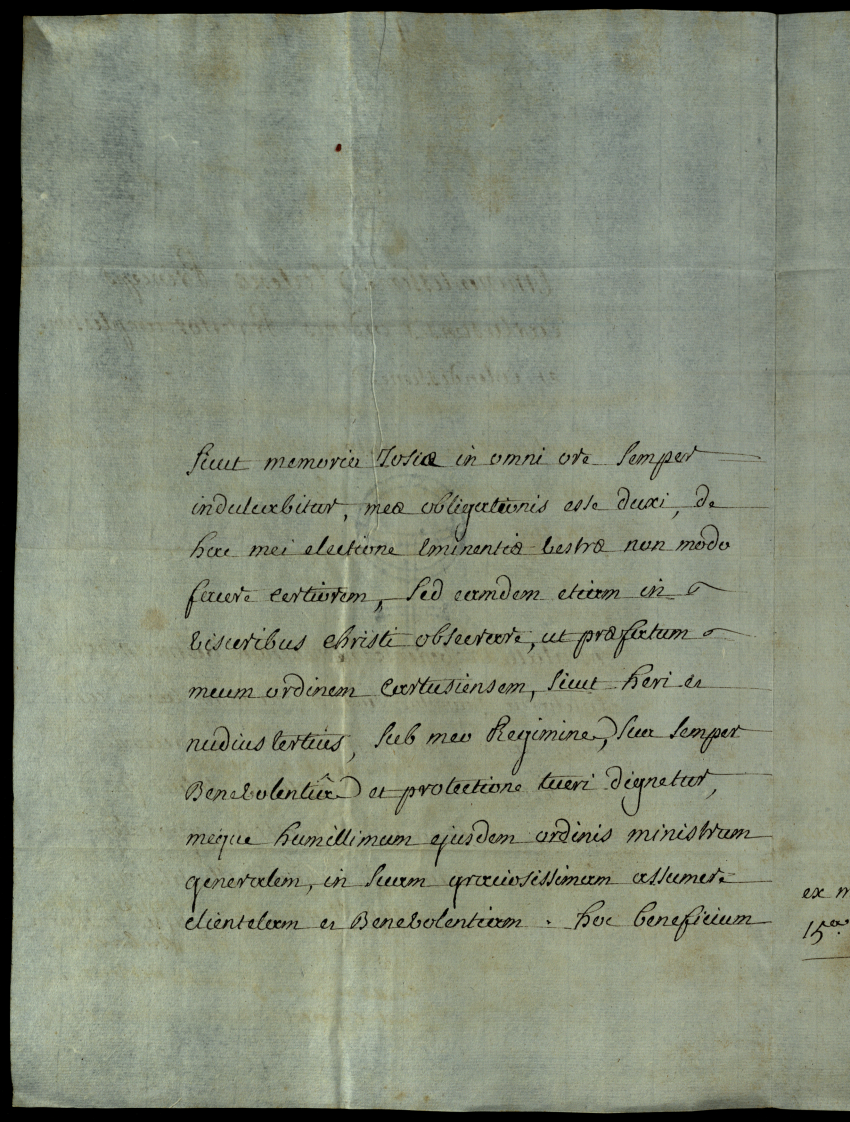 sicut memoria Josiæ in omni ore semper
indulcabitur, meæ obligationis esse duxi, de
hac mei electione Eminentiæ vestræ non modo
facere certiorem, sed eamdem etiam in
visceribus Christi obsecrare, ut præfatum
meum ordinem Cartusiensem, sicut heri et
nudius tertius, sub meo Regimine, sua semper
Benevolentiâ et protectione tueri dignetur,
meque humillimum ejusdem ordinis ministrum
generalem, in suam graciosissimam assumere
clientelam et Benevolentiam. hoc beneficium
ex m
15a